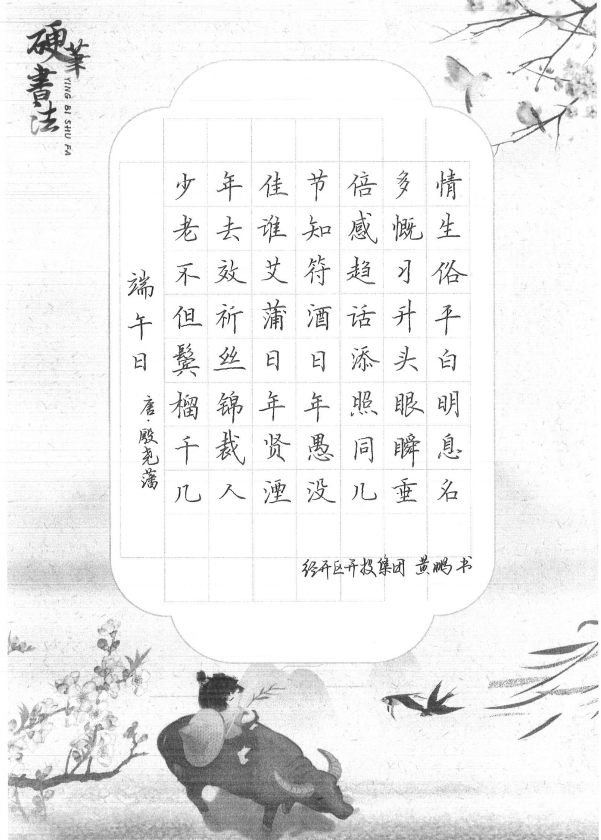 硬筆書法
YING BI SHU FA
端午日
唐·殷尧藩
少年佳节倍多情
老去谁知感慨生
不效艾符趋习俗
但祈蒲酒话升平
鬓丝日日添头白
榴锦年年照眼明
千裁贤愚同瞬息
几人湮没几垂名
经开区开投集团 黄鹏书